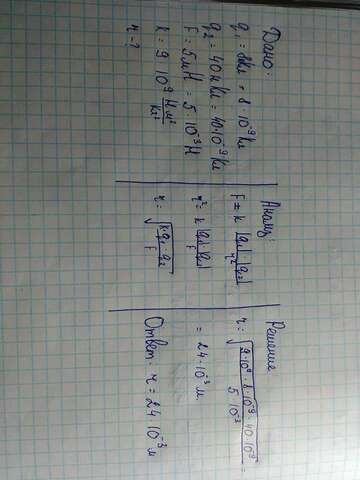 Дано:
q₁ = 8нКл = 8·10⁻⁹Кл
q₂ = 40нКл = 40·10⁻⁹Кл
F = 5мН = 5·10⁻³Н
k = 9·10⁹ Н·м²/Кл²
r - ?
Анализ:
F = k |q₁|·|q₂|/r²
r² = k |q₁|·|q₂|/F
r = √(k·q₁·q₂/F)
Решение
r = √(9·10⁹·8·10⁻⁹·40·10⁻⁹/5·10⁻³) =
= 24·10⁻³м
Ответ: r = 24·10⁻³м